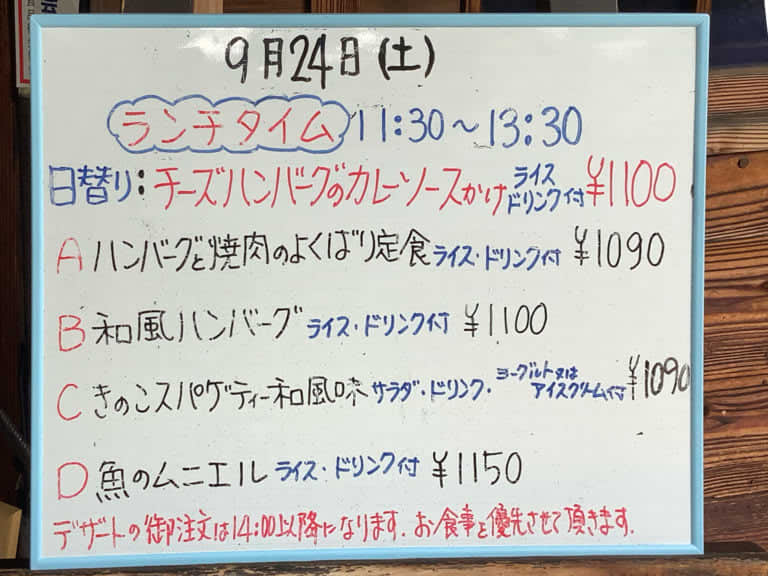 9月24日(土)
ランチタイム 11:30～13:30
日替り:チーズハンバーグのカレーソースかけ ライス ドリンク付 ¥1100
A ハンバーグと焼肉のよくばり定食 ライス・ドリンク付 ¥1090
B 和風ハンバーグ ライス・ドリンク付 ¥1100
C きのこスパゲティー和風味 サラダ・ドリンク・ヨーグルト又はアイスクリーム付 ¥1090
D 魚のムニエル ライス・ドリンク付 ¥1150
デザートの御注文は14:00以降になります。お食事を優先させて頂きます。